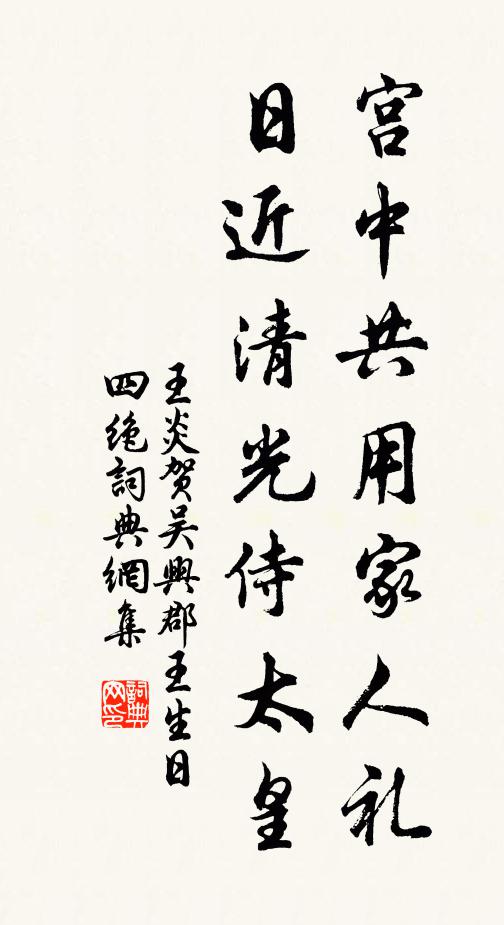 宫中共用家人礼
日近清光侍太皇
王炎贺吴興郡王生日
四绝詞典網集
詞典网印